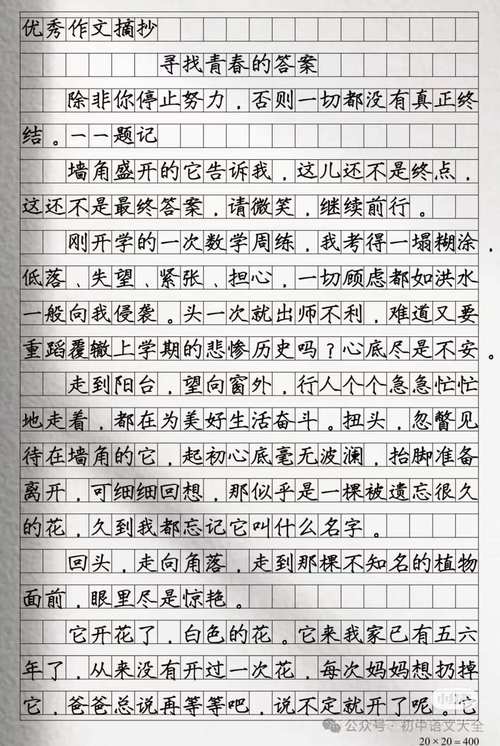 优秀作文摘抄
寻找青春的答案
除非你停止努力，否则一切都没有真正终
结。一一题记
墙角盛开的它告诉我，这儿还不是终点，
这还不是最终答案，请微笑，继续前行。
刚开学的一次数学周练，我考得一塌糊涂，
低落、失望、紧张、担心，一切顾虑都如洪水
一般向我侵袭。头一次就出师不利，难道又要
重蹈覆辙上学期的悲惨历史吗？心底尽是不安。
走到阳台，望向窗外，行人个个急急忙忙
地走着，都在为美好生活奋斗。扭头，忽瞥见
待在墙角的它，起初心底毫无波澜，抬脚准备
离开，可细细回想，那似乎是一棵被遗忘很久
的花，久到我都忘记它叫什么名字。
回头，走向角落，走到那棵不知名的植物
面前，眼里尽是惊艳。
它开花了，白色的花。它来我家已有五六
年了，从来没有开过一次花，每次妈妈想扔掉
它，爸爸总说再等等吧，说不定就开了呢。它
公众号·初中语文大全
20×20=400